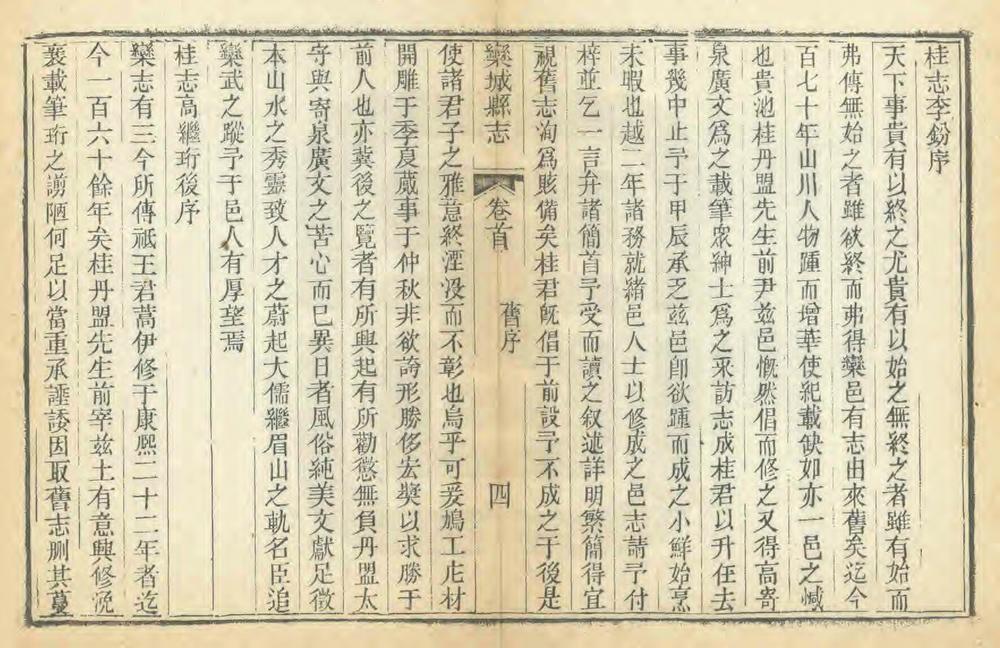 桂志李鈖序
天下事貴有以終之尤貴有以始之無終之者雖有始而
弗傳無始之者雖欲終而弗得欒邑有志由來舊矣迄今
百七十年山川人物踵而增華使紀載缺如亦一邑之憾
也貴池桂丹盟先生前尹茲邑慨然倡而修之又得高寄
泉廣文爲之載筆衆紳士爲之采訪志成桂君以升任去
事幾中止予于甲辰承乏茲邑卽欲踵而成之小鮮始烹
未暇也越二年諸務就緒邑人士以修成之邑志請予付
梓並乞一言弁諸簡首予受而讀之叙述詳明繁簡得宜
視舊志洵爲賅備矣桂君旣倡于前設予不成之于後是
欒城縣志 卷首 舊序 四
使諸君子之雅意終湮沒而不彰也烏乎可爰鳩工庀材
開雕于季夏蕆事于仲秋非欲誇形勝侈宏奬以求勝于
前人也亦冀後之覽者有所興起有所勸懲無負丹盟太
守與寄泉廣文之苦心而已異日者風俗純美文獻足徵
本山水之秀靈致人才之蔚起大儒繼眉山之軌名臣追
欒武之蹤予于邑人有厚望焉
桂志高繼珩後序
欒志有三今所傳祗王君蒿伊修于康熙二十二年者迄
今一百六十餘年矣桂丹盟先生前宰茲土有意興修浼
襄載筆珩之謭陋何足以當重承諈諉因取舊志刪其蔓